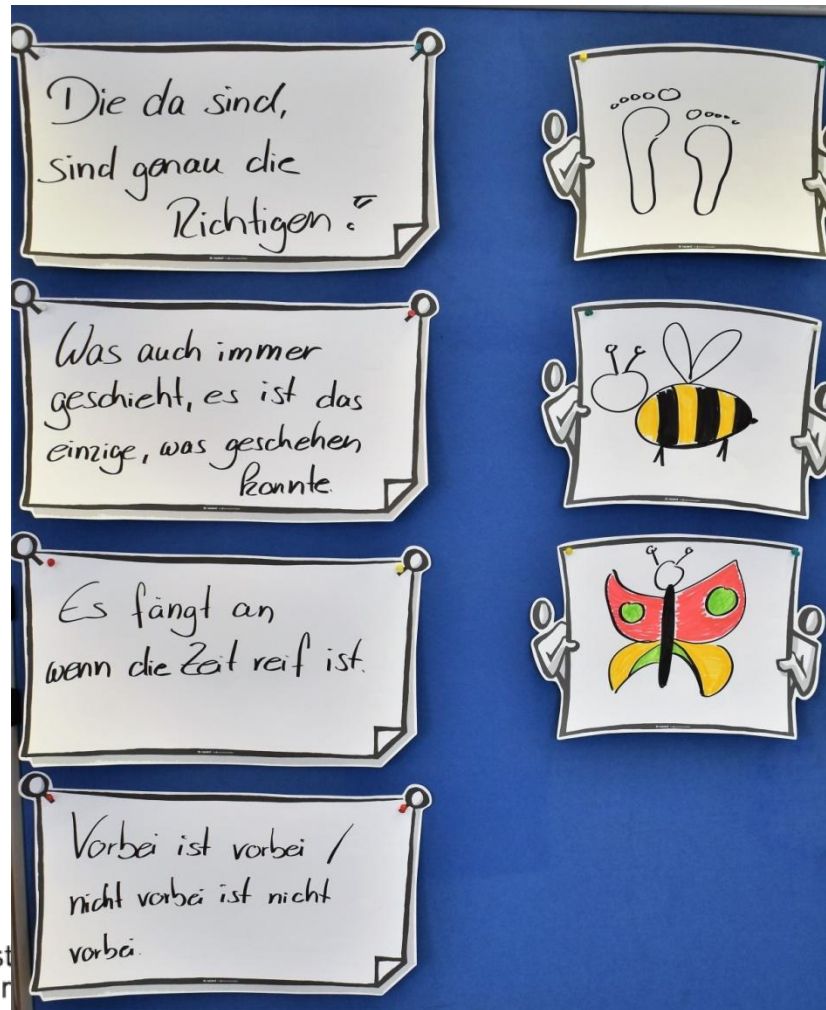 Die da sind,
sind genau die
Richtigen."
Was auch immer
geschieht, es ist das
einzige, was geschehen
konnte.
Es fängt an
wenn die Zeit reif ist.
Vorbei ist vorbei /
nicht vorbei ist nicht
vorbei.